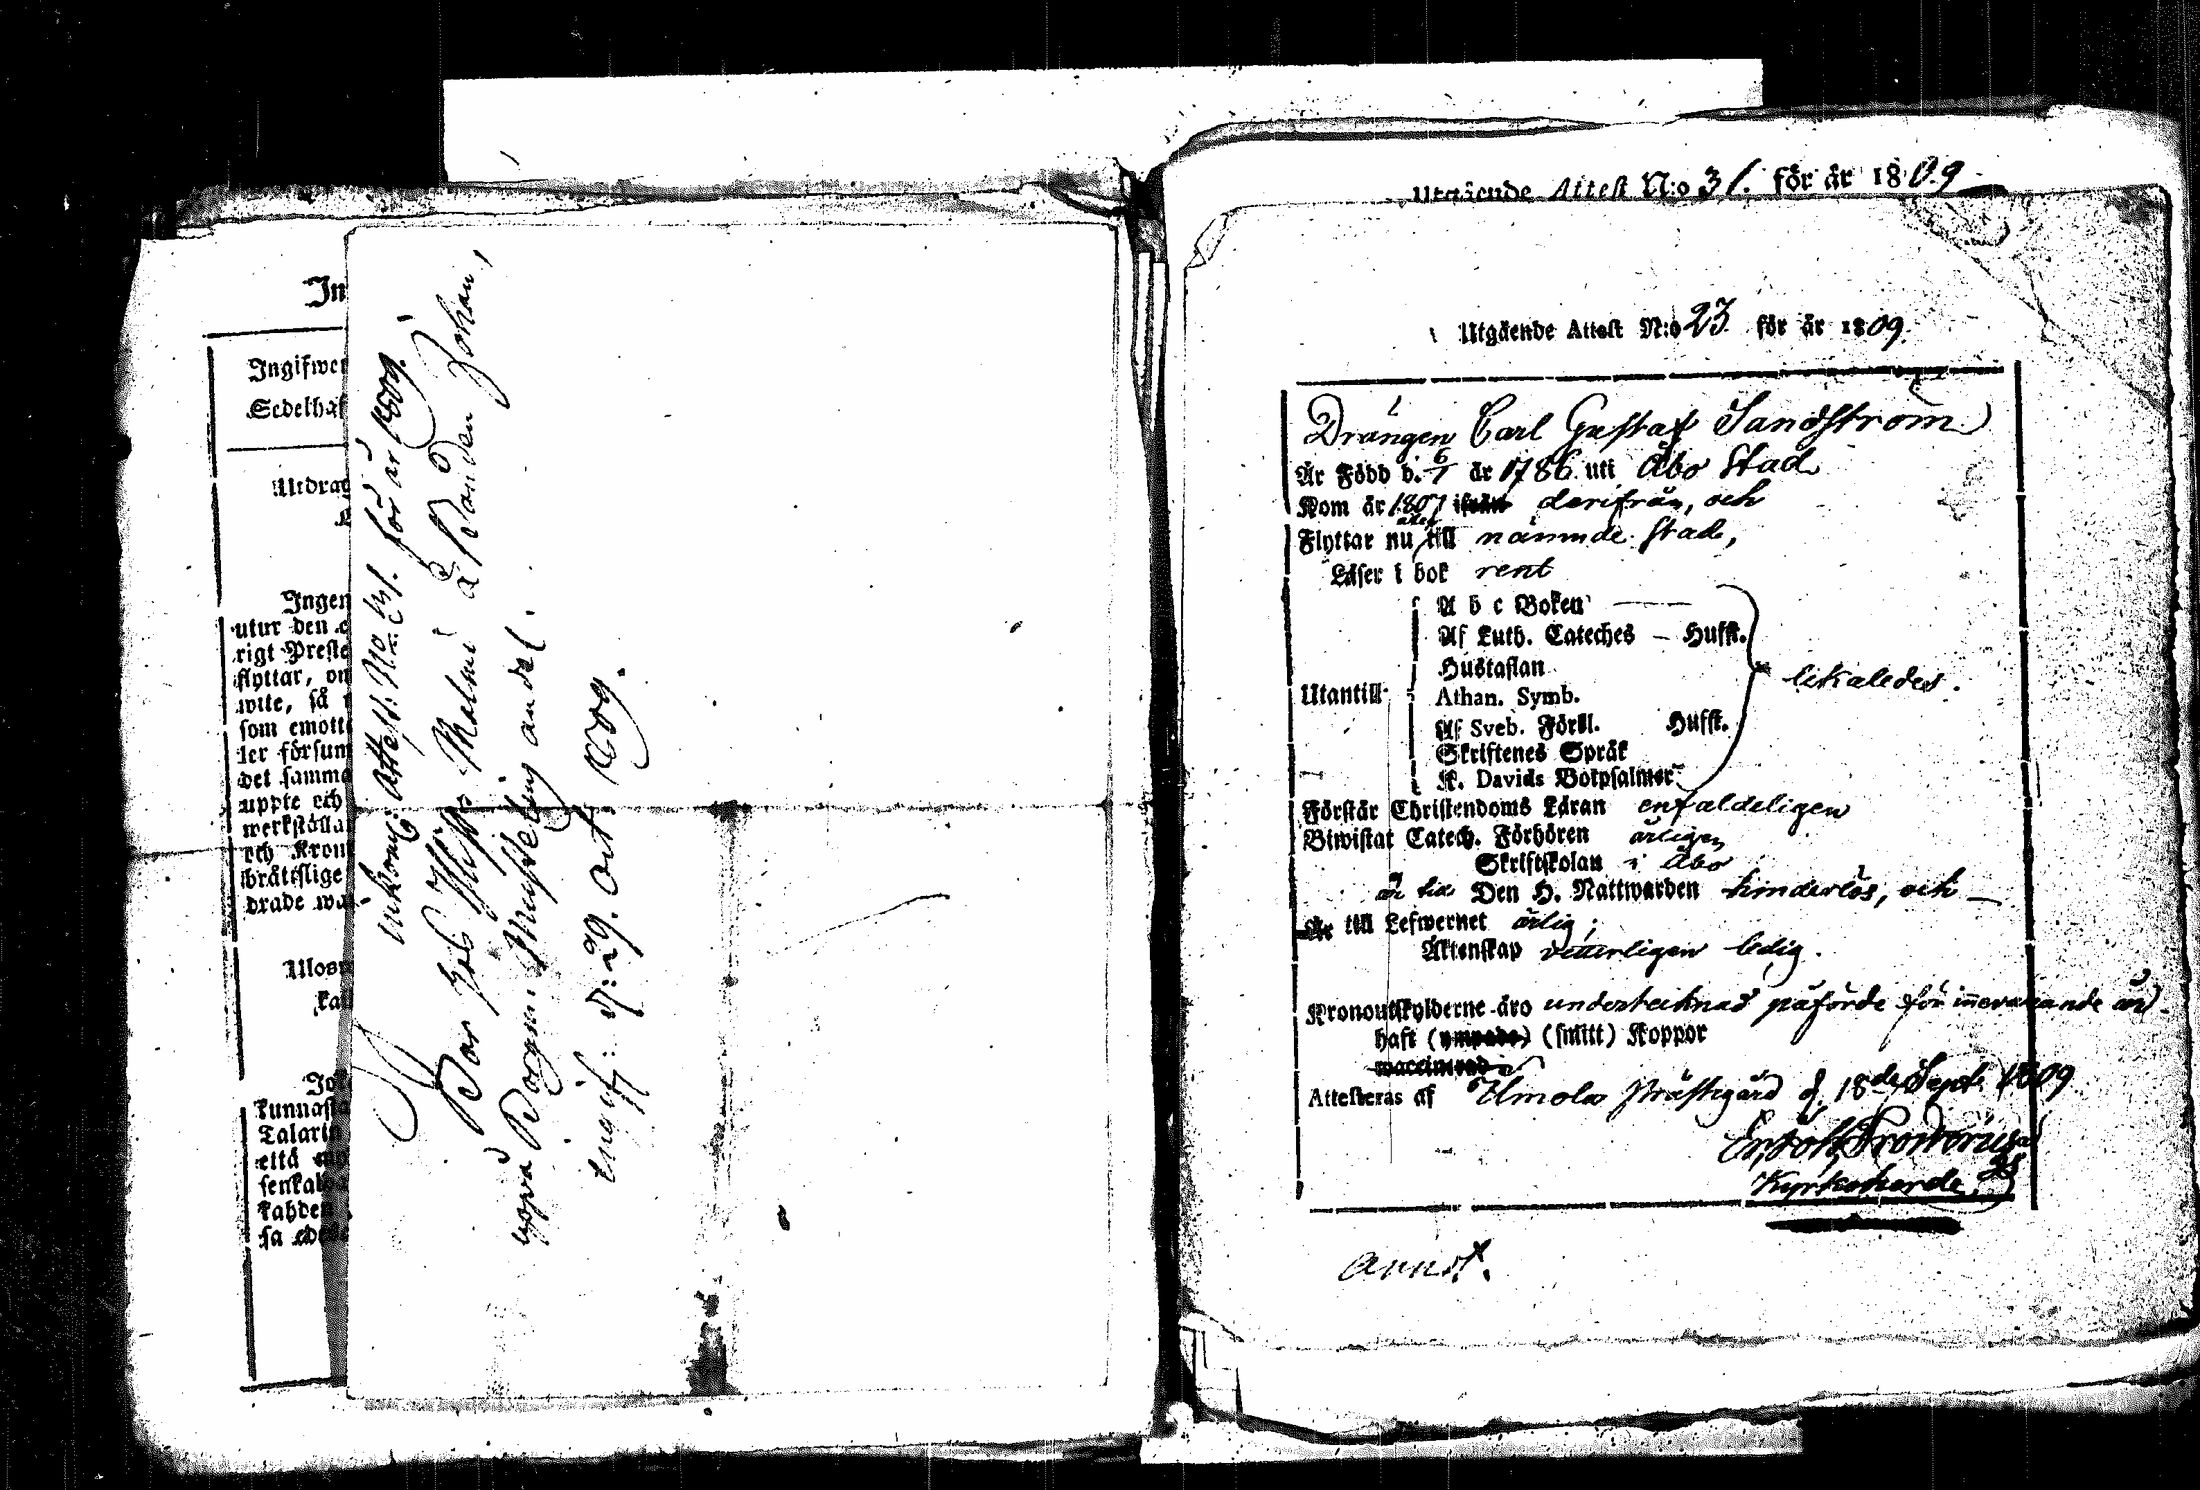 In
Ingifwer
Sedelhaf
Utdrag
Ingen
utur den
rigt Preste
flyttar, om
wite, så
som emott
ler försum
det samma
uppte och
werkställa
och Kron
brättslige
drade wa
kunnasta
Talarin
että
senkal
kahden
sa
Inkomg: Attest: No 31. för år 1809.
Bor hos Malmi å Bonden Johan,
uppå andel.
ingif: d: 29. Oct: 1809.
Utgående Attest N:o 31. för år 1809
Utgående Attest N:o 23 för år 1809.
Drängen Carl Gustaf Sandström
Är Född d. 6/1 år 1786 uti Åbo Stad
Kom år 1807 ifrån derifrån, och
Flyttar nu åter till nämnde Stad,
Läser i bok rent
A b c Boken
Af Luth. Cateches — Hufst.
Hustaflan
Utantill Athan. Symb. likaledes.
Af Sveb. Förkl. Hufst.
Skriftenes Språk
K. Davids Botpsalmer
Förstår Christendoms Läran enfaldeligen
Biwistat Catech. Förhören årligen
Skriftskolan i Åbo
Den H. Nattwarden hinderlös, och
Är till Lefwernet ärlig;
Äktenskap veterligen ledig.
Kronoutskylderne äro undertecknad påförde för innevarande år.
haft (ympade) (smitt) Koppor
waccinerad
Attesteras af Ulmola Prästegård d. 18de Sept. 1809
Kyrkoherde.
annot.